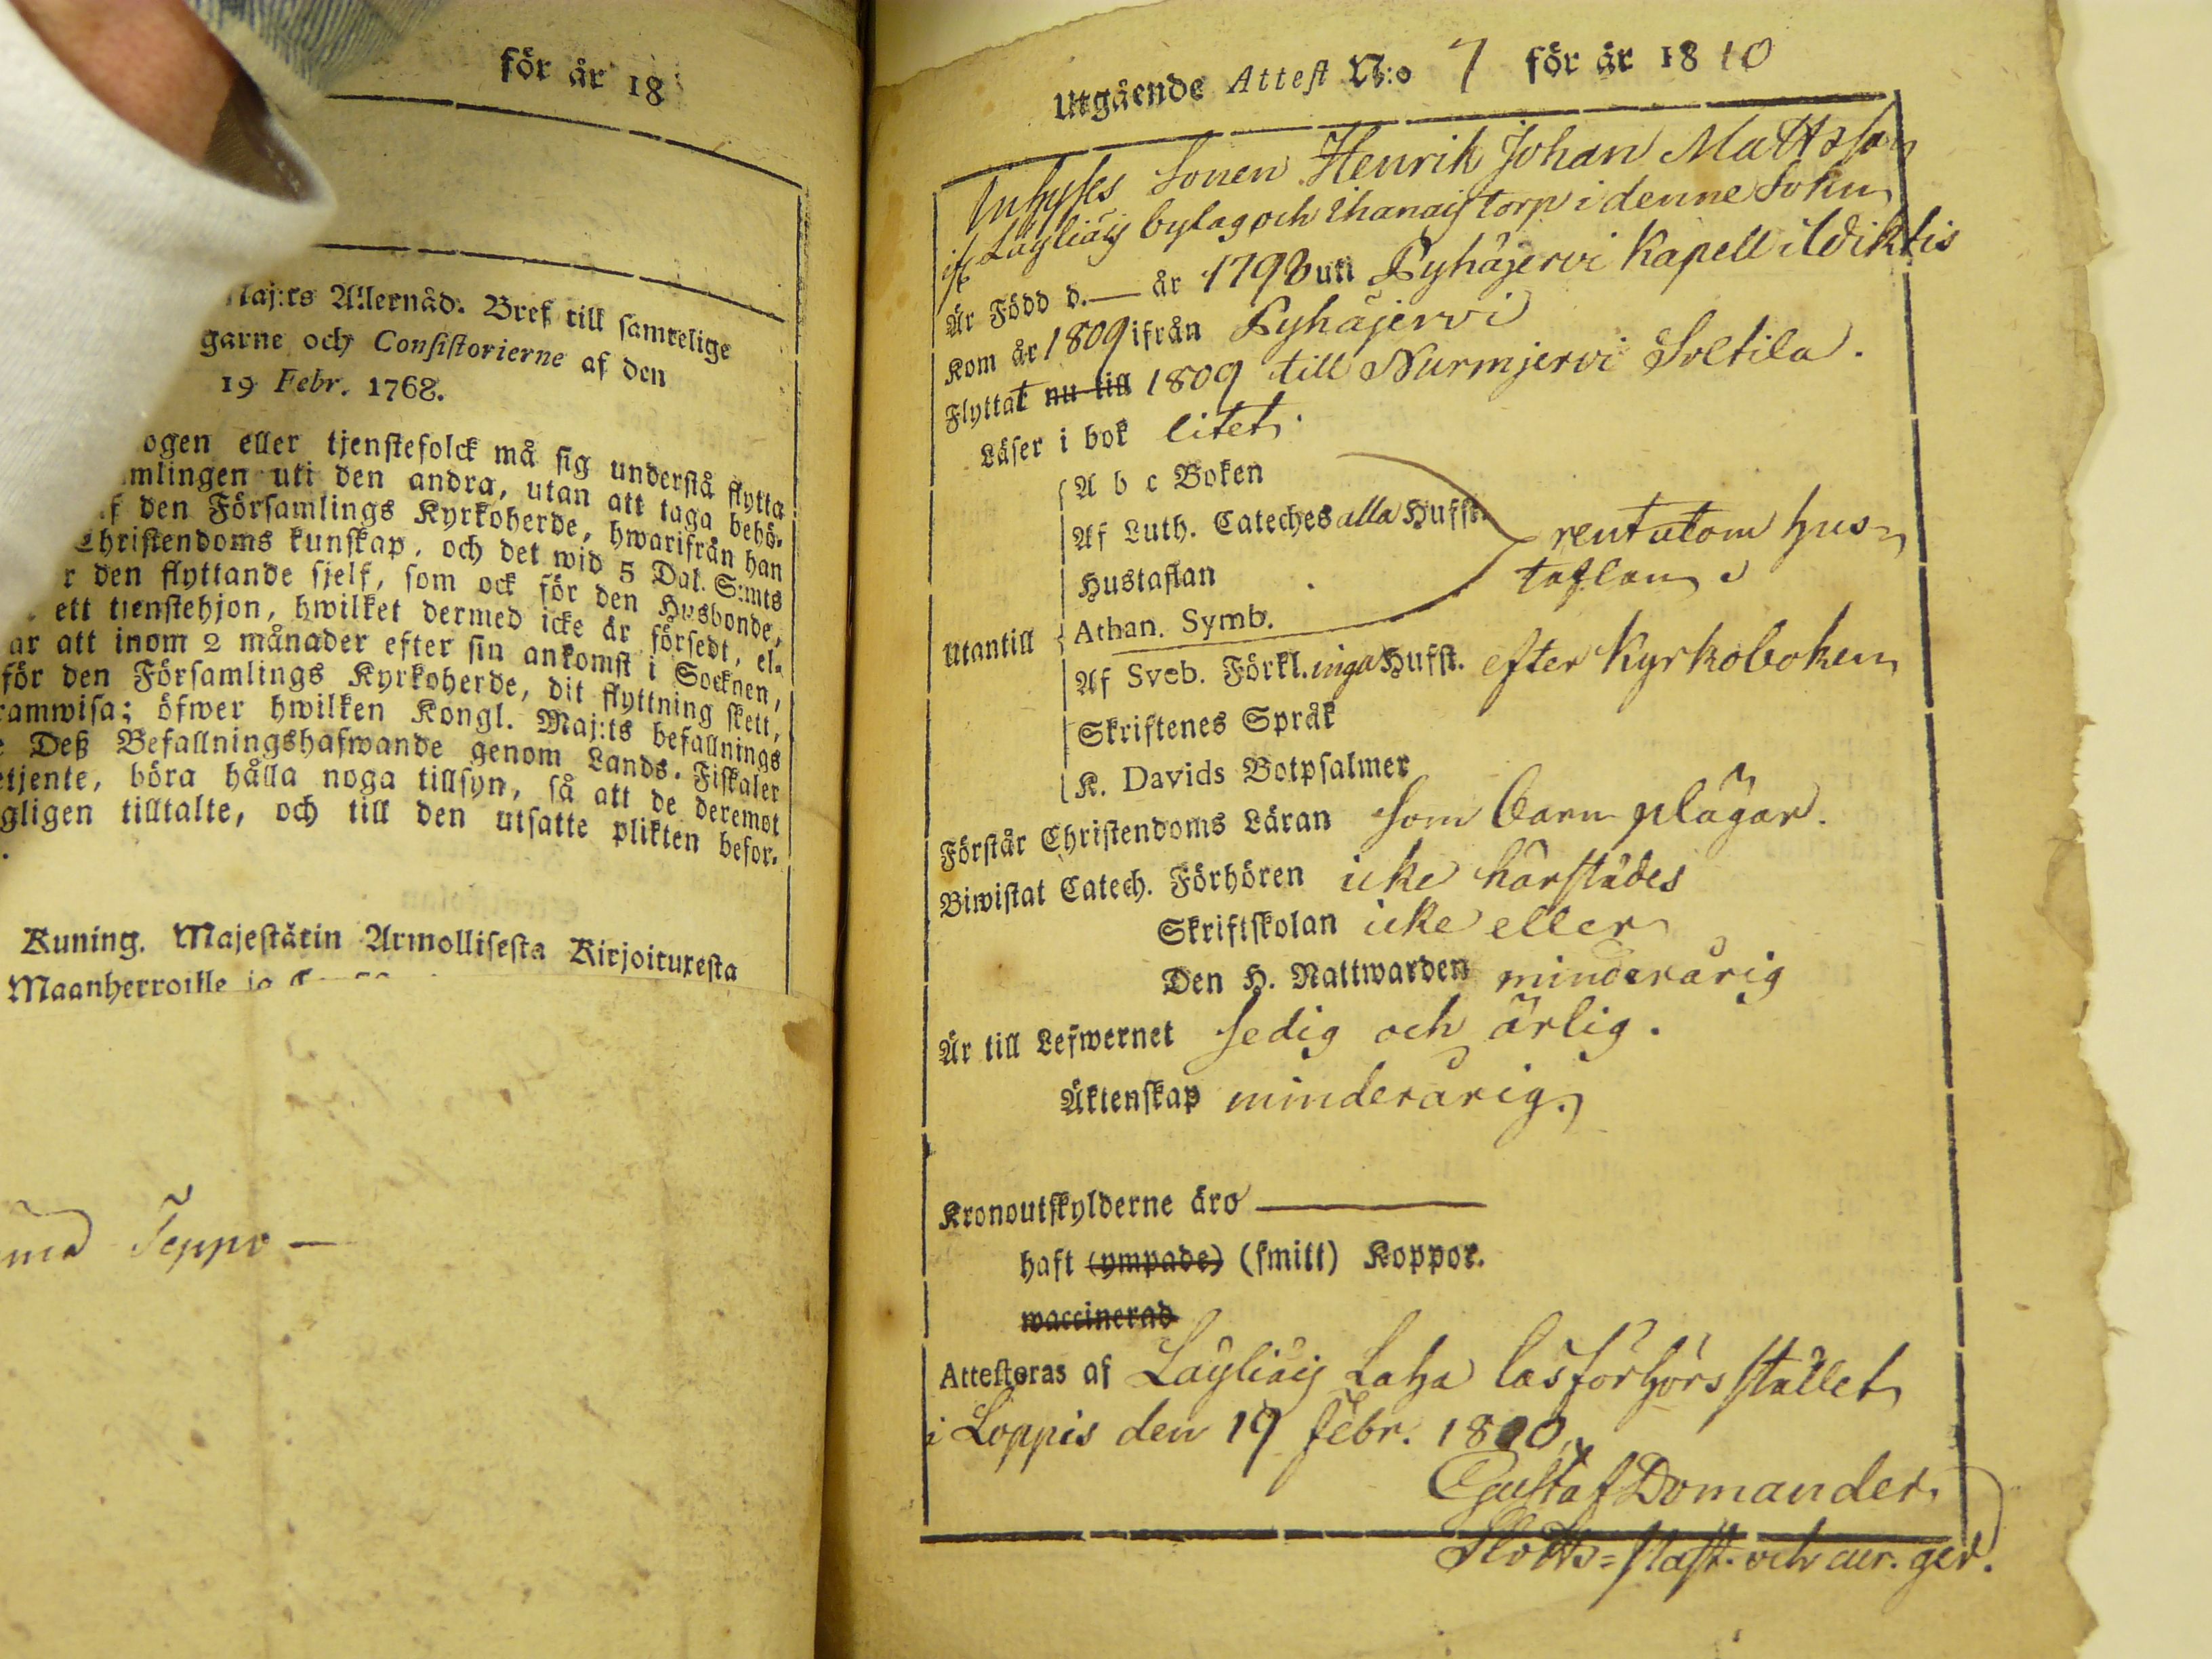 för år 18
Maj:ts Allernåd. Bref till samtelige
garne och Consistorierne af den
19 Febr. 1768.
ogen eller tjenstefolck må sig understå flytta
mlingen uti den andra, utan att taga behö-
f den Församlings Kyrkoherde, hwarifrån han
Christendoms kunskap, och det wid 5 Dal. S:mts
r den flyttande sjelf, som ock för den Husbonde,
ett tjenstehjon, hwilket dermed icke är försedt, el-
ar att inom 2 månader efter sin ankomst i Socknen,
för den Församlings Kyrkoherde, dit flyttning skett,
ramwisa; öfwer hwilken Kongl. Maj:ts befallnings
Deß Befallningshafwande genom Lands-Fiskaler
etjente, böra hålla noga tillsyn, så att de deremot
gligen tilltalte, och till den utsatte plikten befor-
Kuning. Majestätin Armollisesta Kirjoituxesta
Maanherroille ja
Teppo —
Utgående Attest N:o 7 för år 1810
Inhyses Sonen Henrik Johan Mattsson
if Läyliäis bylag och torp i denne Sokn
Är Född d. — år 1798 uti Pyhäjervi Kapell i Wiktis
Kom år 1809 ifrån Pyhäjervi
Flyttat nu till 1809 till Nurmjervi Soltila.
Läser i bok litet.
Utantill
A b c Boken
Af Luth. Cateches alla Hufst.
Hustaflan
Athan. Symb.
rent utom hus-
taflan
Af Sveb. Förkl. inga Hufst. efter Kyrkoboken
Skriftenes Språk
K. Davids Botpsalmer
Förstår Christendoms Läran som barn plägar.
Biwistat Catech. Förhören icke härstädes
Skriftskolan icke eller
Den H. Nattwarden minderårig
Är till Lefwernet sedig och ärlig.
Äktenskap minderårig.
Kronoutskylderne äro —
haft (ympade) (smitt) Koppor.
waccinerad
Attesteras af Läyliäis Laha läsförhörs stället
i Loppis den 19 Febr. 1810.
Gustaf Domander
Slotts-Past. och cur. ger.